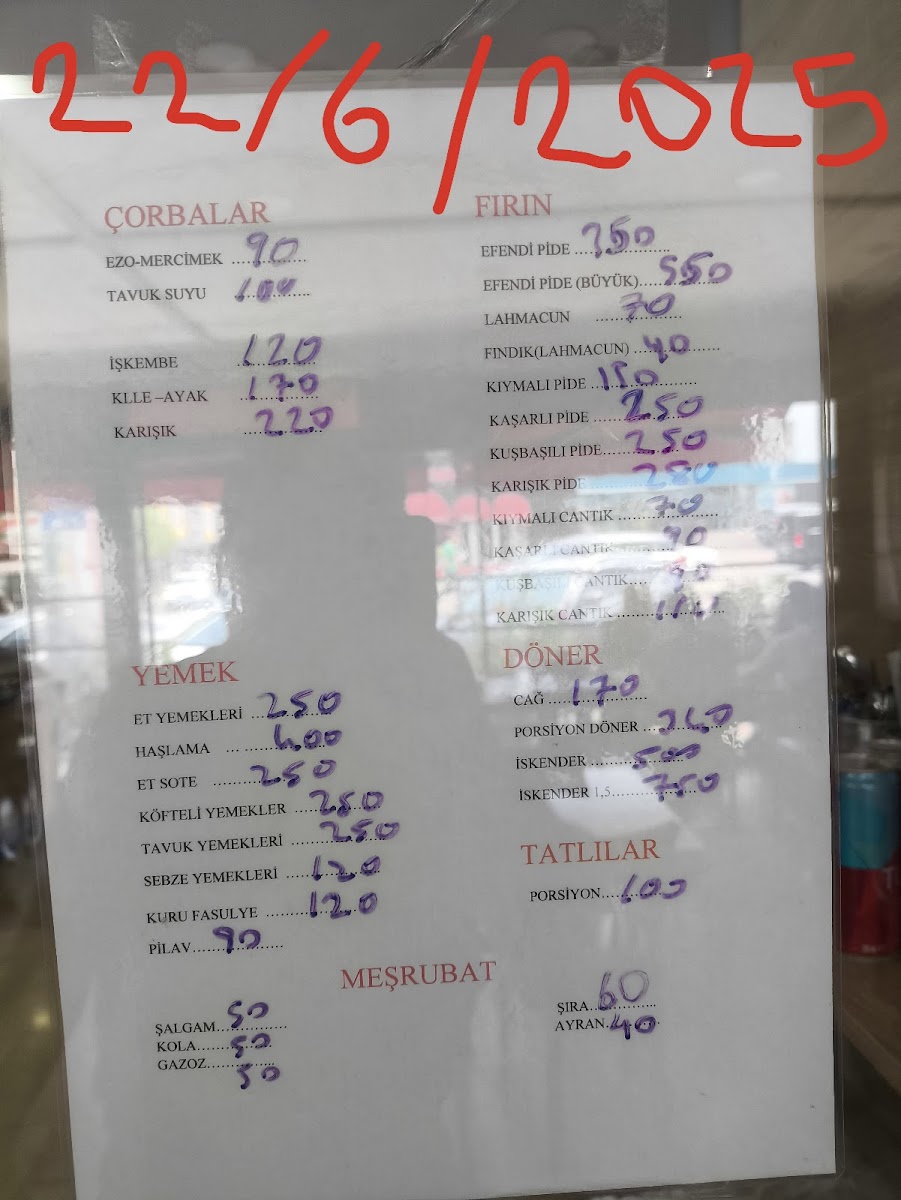 22/6/2025
ÇORBALAR
EZO-MERCİMEK ........... 90
TAVUK SUYU ........... 100
İŞKEMBE ........... 120
KLLE –AYAK ........... 170
KARIŞIK ........... 220
FIRIN
EFENDİ PİDE ........... 350
EFENDİ PİDE (BÜYÜK)........... 550
LAHMACUN ........... 70
FINDIK(LAHMACUN) ........... 40
KIYMALI PİDE ...........
KAŞARLI PİDE ........... 250
KUŞBAŞILI PİDE........... 250
KARIŞIK PİDE ........... 280
KIYMALI CANTIK ........... 70
KAŞARLI CANTIK ........... 90
KUŞBAŞILI CANTIK.... 90
KARIŞIK CANTIK ...........
YEMEK
ET YEMEKLERİ ........... 250
HAŞLAMA ... ........... 400
ET SOTE ........... 250
KÖFTELİ YEMEKLER ........... 250
TAVUK YEMEKLERİ ........... 250
SEBZE YEMEKLERİ ........... 120
KURU FASULYE ........... 120
PİLAV........... 90
DÖNER
CAĞ ........... 170
PORSİYON DÖNER ........... 340
İSKENDER ........... 500
İSKENDER 1,5........... 750
TATLILAR
PORSİYON........... 100
MEŞRUBAT
ŞALGAM........... 50
KOLA........... 50
GAZOZ........... 50
ŞIRA........... 60
AYRAN........... 40